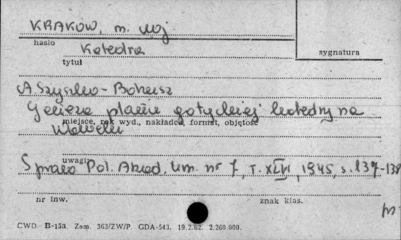 KRAKÓW, m. woj
hasło
Katedra
sygnatura
tytuł
A Szyszko-Bohusz
Geneza planu gotyckiej katedry na
miejsce, rok wyd., nakładca, format, objętość
Wawelu
uwagi
Spraw Pol. Akad. Um. nr 7, T. XLVI, 1945, s. 137-138
nr inw.
znak klas.
CWD. B-15a. Zam. 363/ZW/P. GDA-543. 19.2.62. 2.260.000.